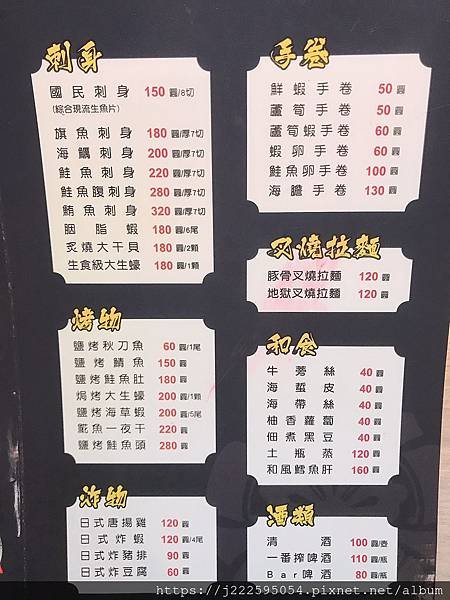 刺身
國民刺身 150 圓/8切
(綜合現流生魚片)
旗魚刺身 180 圓/厚7切
海鱺刺身 200 圓/厚7切
鮭魚刺身 220 圓/厚7切
鮭魚腹刺身 280 圓/厚7切
鮪魚刺身 320 圓/厚7切
胭脂蝦 180 圓/6尾
炙燒大干貝 180 圓/2顆
生食級大生蠔 180 圓/1顆
烤物
鹽烤秋刀魚 60 圓/1尾
鹽烤鯖魚 150 圓
鹽烤鮭魚肚 180 圓
焗烤大生蠔 200 圓/1顆
鹽烤海草蝦 200 圓/5尾
魠魚一夜干 220 圓
鹽烤鮭魚頭 280 圓
炸物
日式唐揚雞 120 圓
日式炸蝦 120 圓/4尾
日式炸豬排 90 圓
日式炸豆腐 60 圓
手卷
鮮蝦手卷 50 圓
蘆筍手卷 50 圓
蘆筍蝦手卷 60 圓
蝦卵手卷 60 圓
鮭魚卵手卷 100 圓
海膽手卷 130 圓
叉燒拉麵
豚骨叉燒拉麵 120 圓
地獄叉燒拉麵 120 圓
和食
牛蒡絲 40 圓
海蜇皮 40 圓
海帶絲 40 圓
柚香蘿蔔 40 圓
佃煮黑豆 40 圓
土瓶蒸 120 圓
和風鱈魚肝 160 圓
酒類
清酒 100 圓/壺
一番搾啤酒 110 圓/瓶
Bar啤酒 80 圓/瓶
https://j222595054.pixnet.net/album